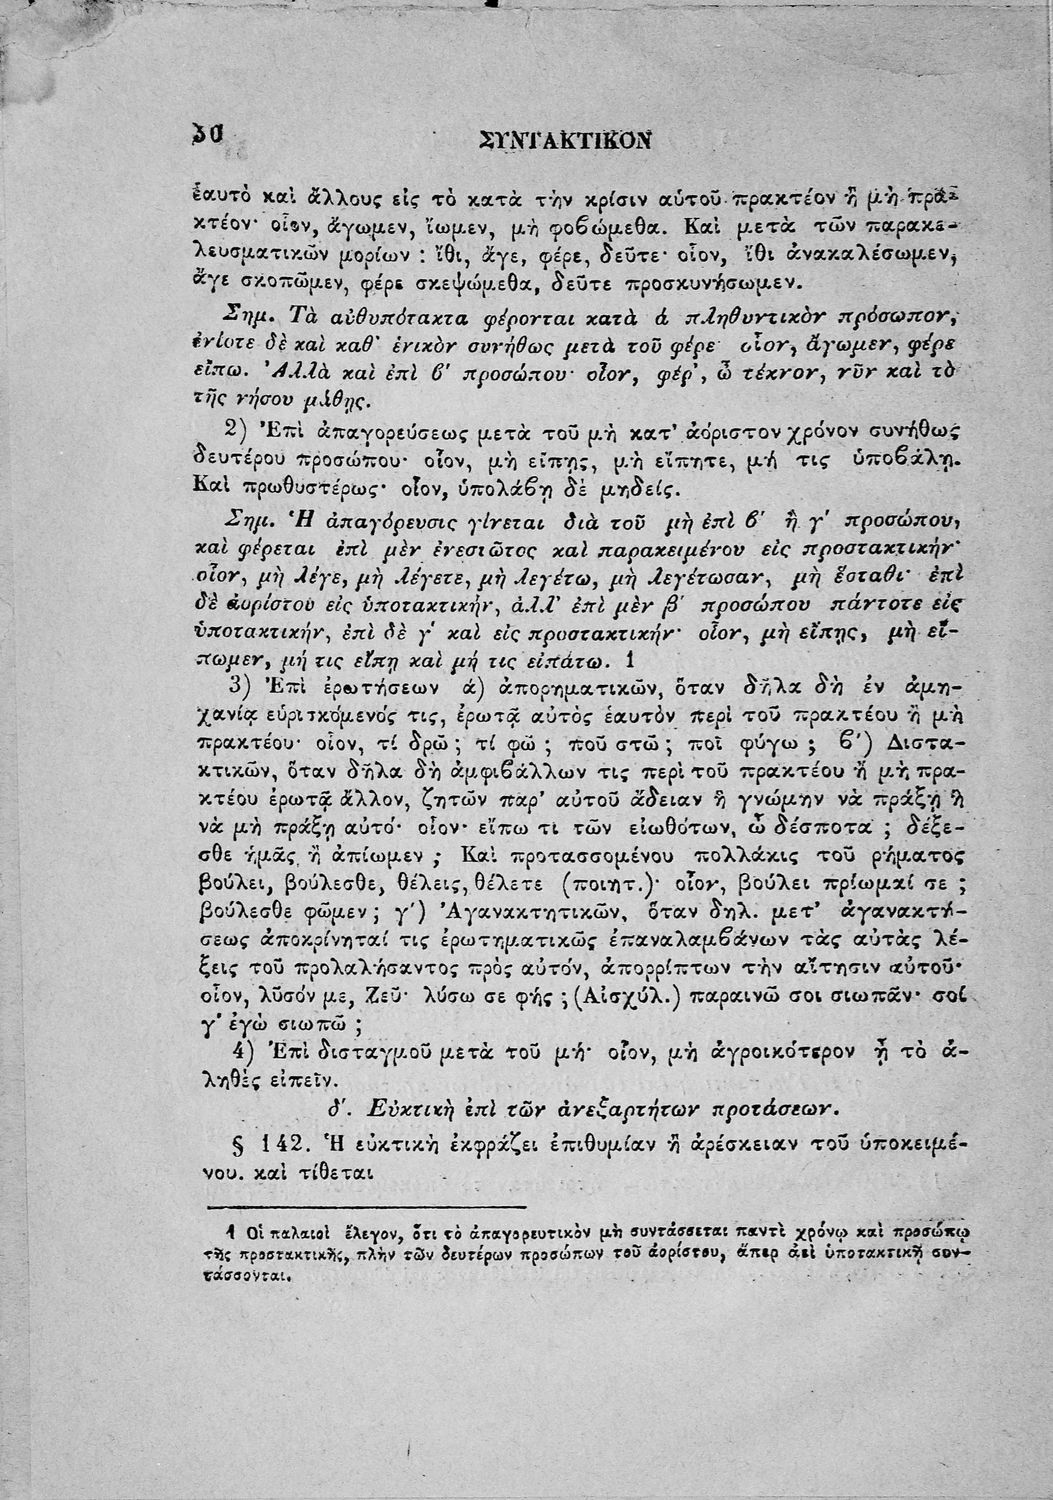 30 ΣΥΝΤΑΚΤΙΚΟΝ
ἑαυτὸ καὶ ἄλλους εἰς τὸ κατὰ τὴν κρίσιν αὑτοῦ πρακτέον ἢ μὴ πρα-
κτέον· οἷον, ἄγωμεν, ἴωμεν, μὴ φοβώμεθα. Καὶ μετὰ τῶν παρακε-
λευσματικῶν μορίων : ἴθι, ἄγε, φέρε, δεῦτε· οἷον, ἴθι ἀνακαλέσωμεν,
ἄγε σκοπῶμεν, φέρε σκεψώμεθα, δεῦτε προσκυνήσωμεν.
Σημ. Τὰ αὐθυπότακτα φέρονται κατὰ ά πληθυντικὸν πρόσωπον,
ἐνίοτε δὲ καὶ καθ' ἑνικὸν συνήθως μετὰ τοῦ φέρε· οἷον, ἄγωμεν, φέρε
εἴπω. Ἀλλὰ καὶ ἐπὶ β' προσώπου· οἷον, φέρ', ὦ τέκνον, νῦν καὶ τὸ
τῆς νήσου μάθῃς.
2) Ἐπὶ ἀπαγορεύσεως μετὰ τοῦ μὴ κατ' ἀόριστον χρόνον συνήθως
δευτέρου προσώπου· οἷον, μὴ εἴπῃς, μὴ εἴπητε, μή τις ὑποβάλῃ.
Καὶ πρωθυστέρως· οἷον, ὑπολάβῃ δὲ μηδείς.
Σημ. Ἡ ἀπαγόρευσις γίνεται διὰ τοῦ μὴ ἐπὶ β' ἢ γ' προσώπου,
καὶ φέρεται ἐπὶ μὲν ἐνεστῶτος καὶ παρακειμένου εἰς προστακτικήν·
οἷον, μὴ λέγε, μὴ λέγετε, μὴ λεγέτω, μὴ λεγέτωσαν, μὴ ἕσταθι· ἐπὶ
δὲ ἀορίστου εἰς ὑποτακτικήν, ἀλλ' ἐπὶ μὲν β' προσώπου πάντοτε εἰς
ὑποτακτικήν, ἐπὶ δὲ γ' καὶ εἰς προστακτικήν· οἷον, μὴ εἴπῃς, μὴ εἴ-
πωμεν, μή τις εἴπῃ καὶ μή τις εἰπάτω. 1
3) Ἐπὶ ἐρωτήσεων ά) ἀπορηματικῶν, ὅταν δῆλα δὴ ἐν ἀμη-
χανίᾳ εὑρισκόμενός τις, ἐρωτᾷ αὐτὸς ἑαυτὸν περὶ τοῦ πρακτέου ἢ μὴ
πρακτέου· οἷον, τί δρῶ ; τί φῶ ; ποῦ στῶ ; ποῖ φύγω ; β') Διστα-
κτικῶν, ὅταν δῆλα δὴ ἀμφιβάλλων τις περὶ τοῦ πρακτέου ἢ μὴ πρα-
κτέου ἐρωτᾷ ἄλλον, ζητῶν παρ' αὐτοῦ ἄδειαν ἢ γνώμην νὰ πράξῃ ἢ
νὰ μὴ πράξῃ αὐτό· οἷον· εἴπω τι τῶν εἰωθότων, ὦ δέσποτα ; δέξε-
σθε ἡμᾶς ἢ ἀπίωμεν ; Καὶ προτασσομένου πολλάκις τοῦ ῥήματος
βούλει, βούλεσθε, θέλεις, θέλετε (ποιητ.)· οἷον, βούλει πρίωμαί σε ;
βούλεσθε φῶμεν ; γ') Ἀγανακτητικῶν, ὅταν δηλ. μετ' ἀγανακτή-
σεως ἀποκρίνηταί τις ἐρωτηματικῶς ἐπαναλαμβάνων τὰς αὐτὰς λέ-
ξεις τοῦ προλαλήσαντος πρὸς αὐτόν, ἀπορρίπτων τὴν αἴτησιν αὐτοῦ·
οἷον, λῦσόν με, Ζεῦ· λύσω σε φῄς ; (Αἰσχύλ.) παραινῶ σοι σιωπᾶν· σοί
γ' ἐγὼ σιωπῶ ;
4) Ἐπὶ δισταγμοῦ μετὰ τοῦ μή· οἷον, μὴ ἀγροικότερον ᾖ τὸ ἀ-
ληθὲς εἰπεῖν.
δ'. Εὐκτικὴ ἐπὶ τῶν ἀνεξαρτήτων προτάσεων.
§ 142. Ἡ εὐκτικὴ ἐκφράζει ἐπιθυμίαν ἢ ἀρέσκειαν τοῦ ὑποκειμέ-
νου. καὶ τίθεται
1 Οἱ παλαιοὶ ἔλεγον, ὅτι τὸ ἀπαγορευτικὸν μὴ συντάσσεται παντὶ χρόνῳ καὶ προσώπῳ
τῆς προστακτικῆς, πλὴν τῶν δευτέρων προσώπων τοῦ ἀορίστου, ἅπερ ἀεὶ ὑποτακτικῇ συν-
τάσσονται.